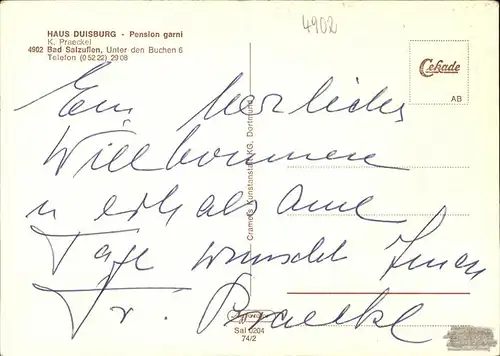 HAUS DUISBURG - Pension garni
K. Praeckel
4902 Bad Salzuflen, Unter den Buchen 6
Telefon (0 52 22) 29 08
4902
Cekade
AB
Ein herzliches
Willkommen
u erholsame
Tage wünscht Ihnen
Fr. Praeckel
Cramers Kunstanstalt KG, Dortmund
Sal 0204
74/2